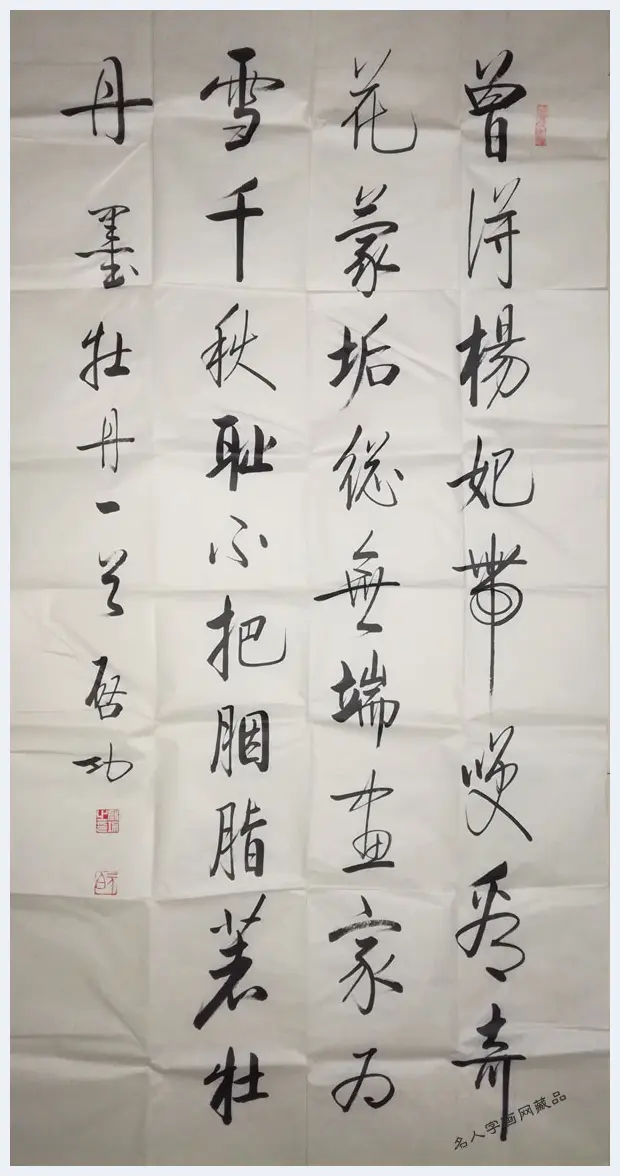 曾得楊妃帶咲看奇
花蒙垢總無端畫家为
雪千秋耻不把胭脂著牡
丹 墨牡丹一首 啓功
名人字画网藏品